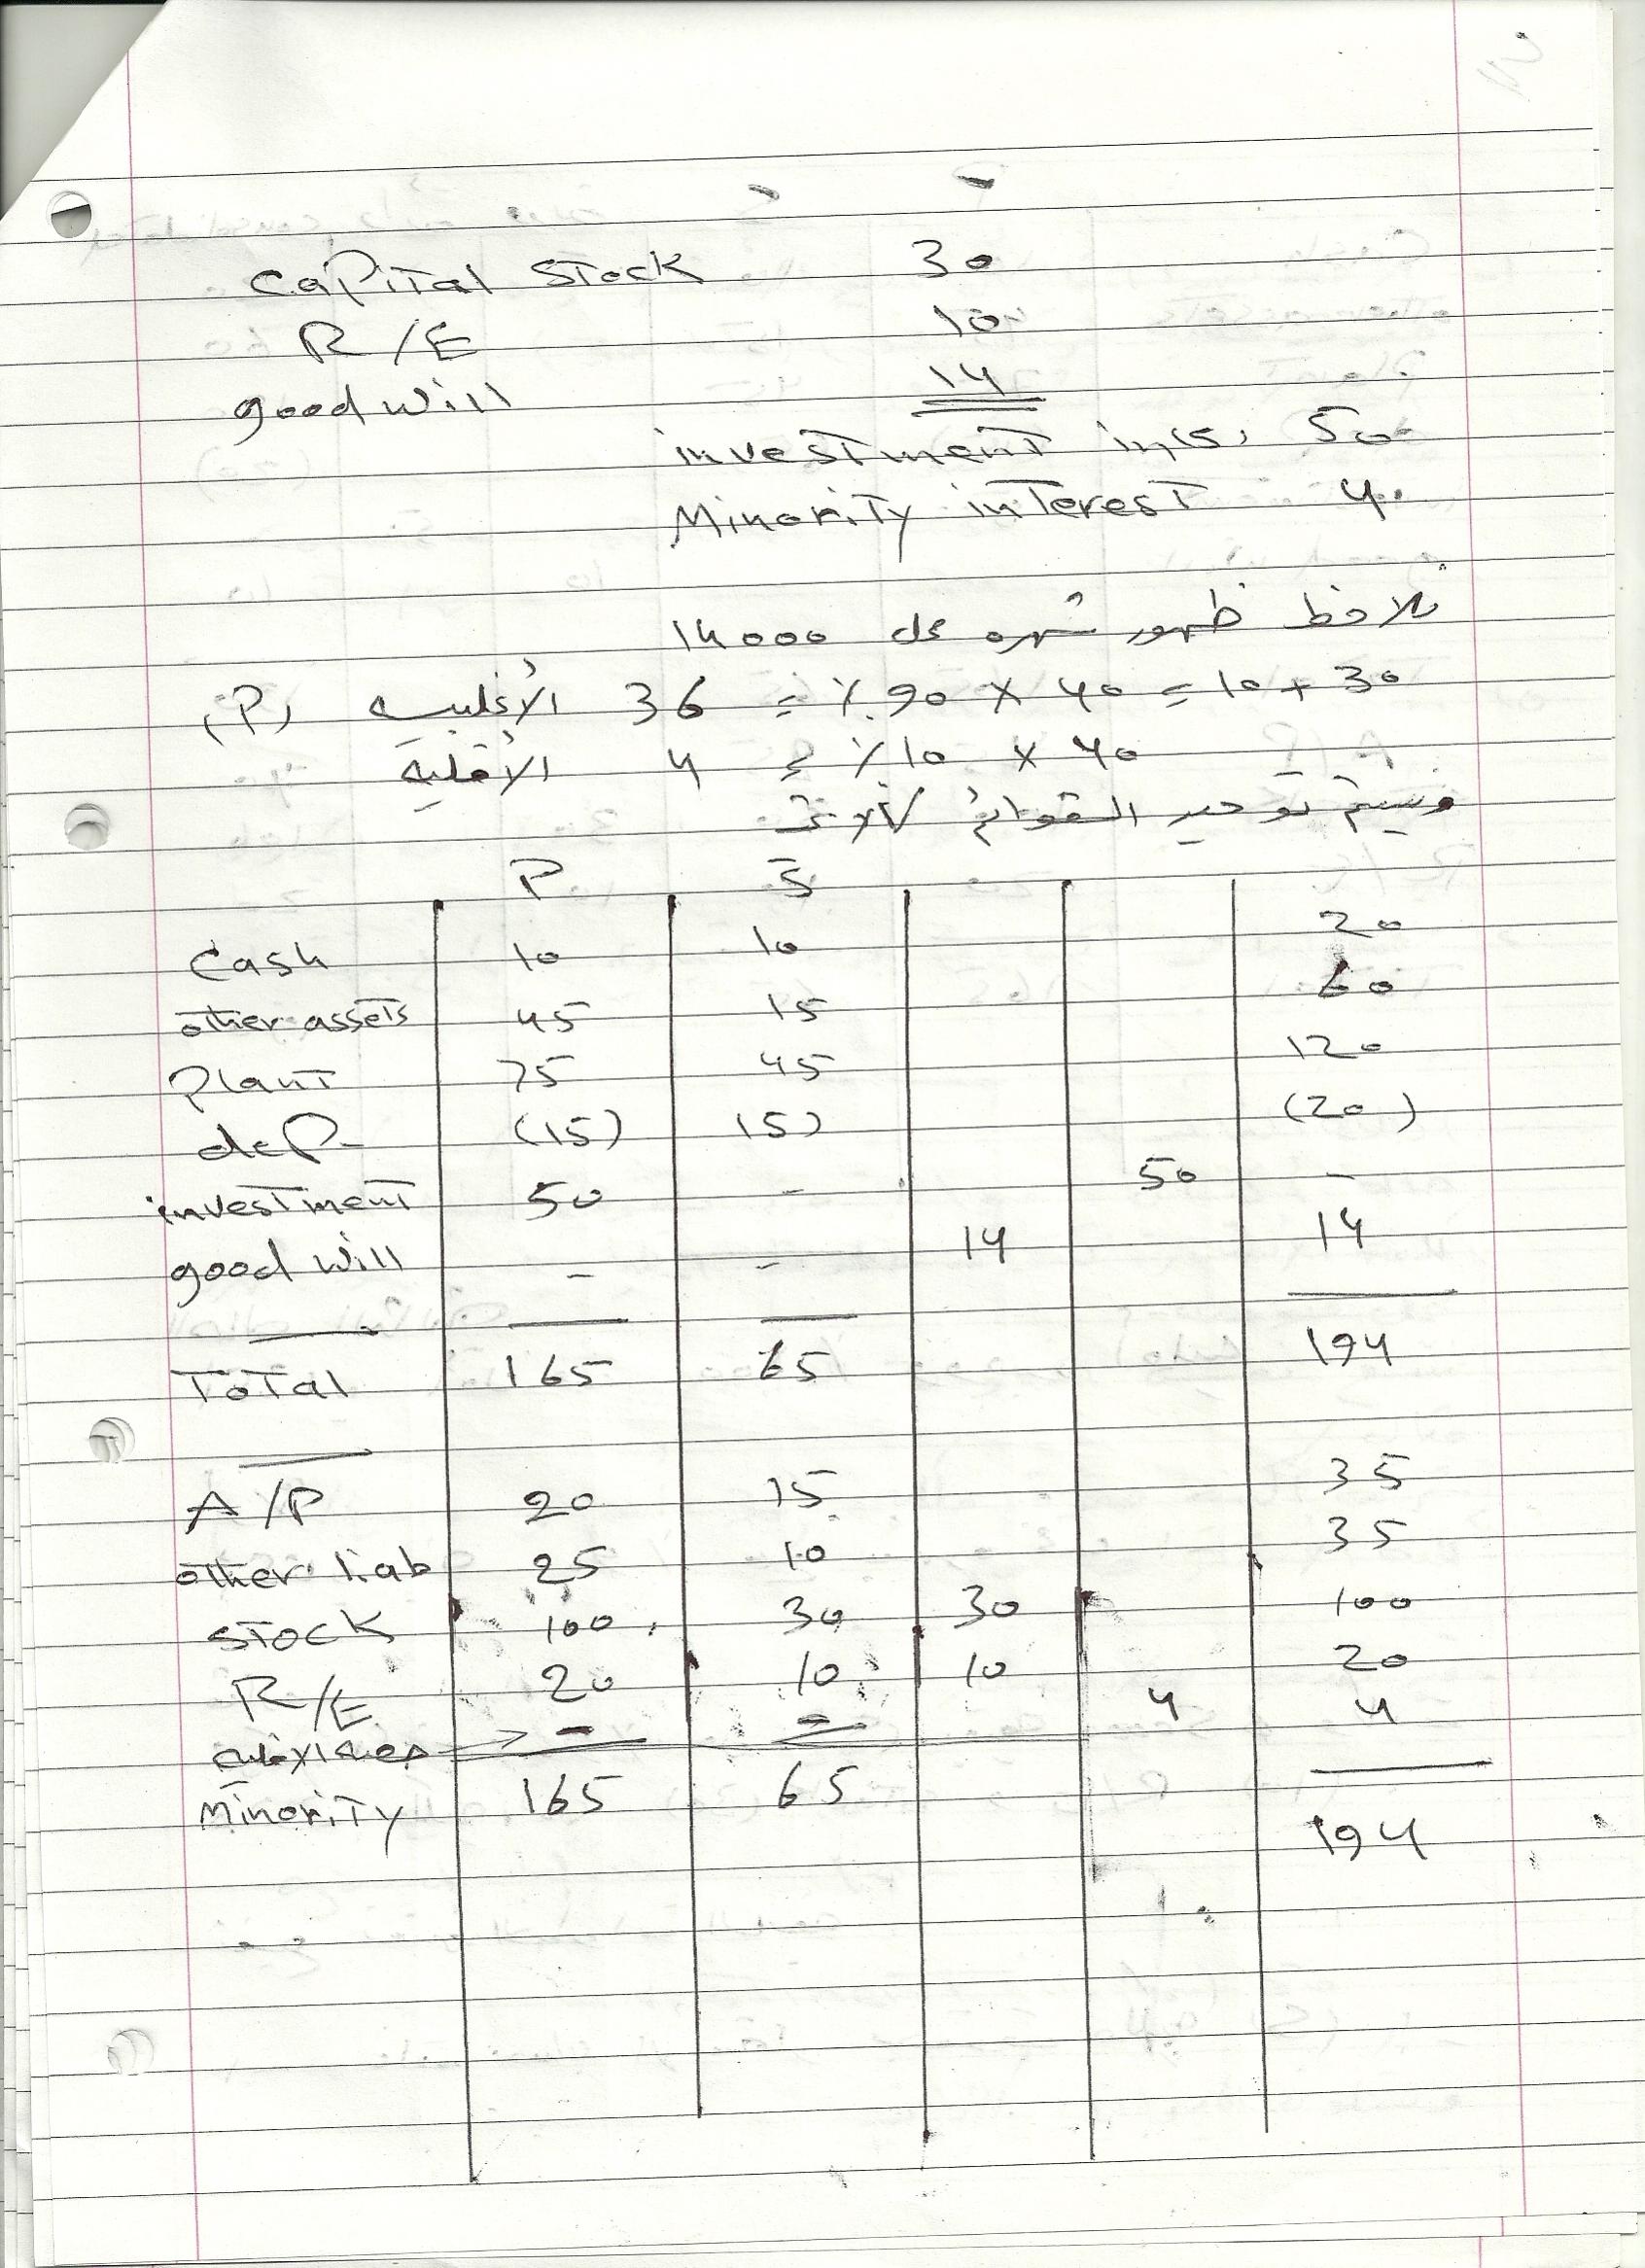 Capital Stock 30
R/E 10
good will 14
investment in (S) 50
Minority interest 4
نلاحظ ظهور شهره محل 14000
30 + 10 = 40 × 90٪ = 36 الأغلبيه (P)
40 × 10٪ = 4 الأقليه
وسيتم توحيد القوائم كالاتى
P S
Cash 10 10 20
other assets 45 15 60
Plant 75 45 120
deP (15) (5) (20)
investment 50 - 50 -
good will - - 14 14
Total 165 65 194
A/P 20 15 35
other liab 25 10 35
Stock 100 30 30 100
R/E 20 10 10 20
- - 4 4
Minority 165 65 194